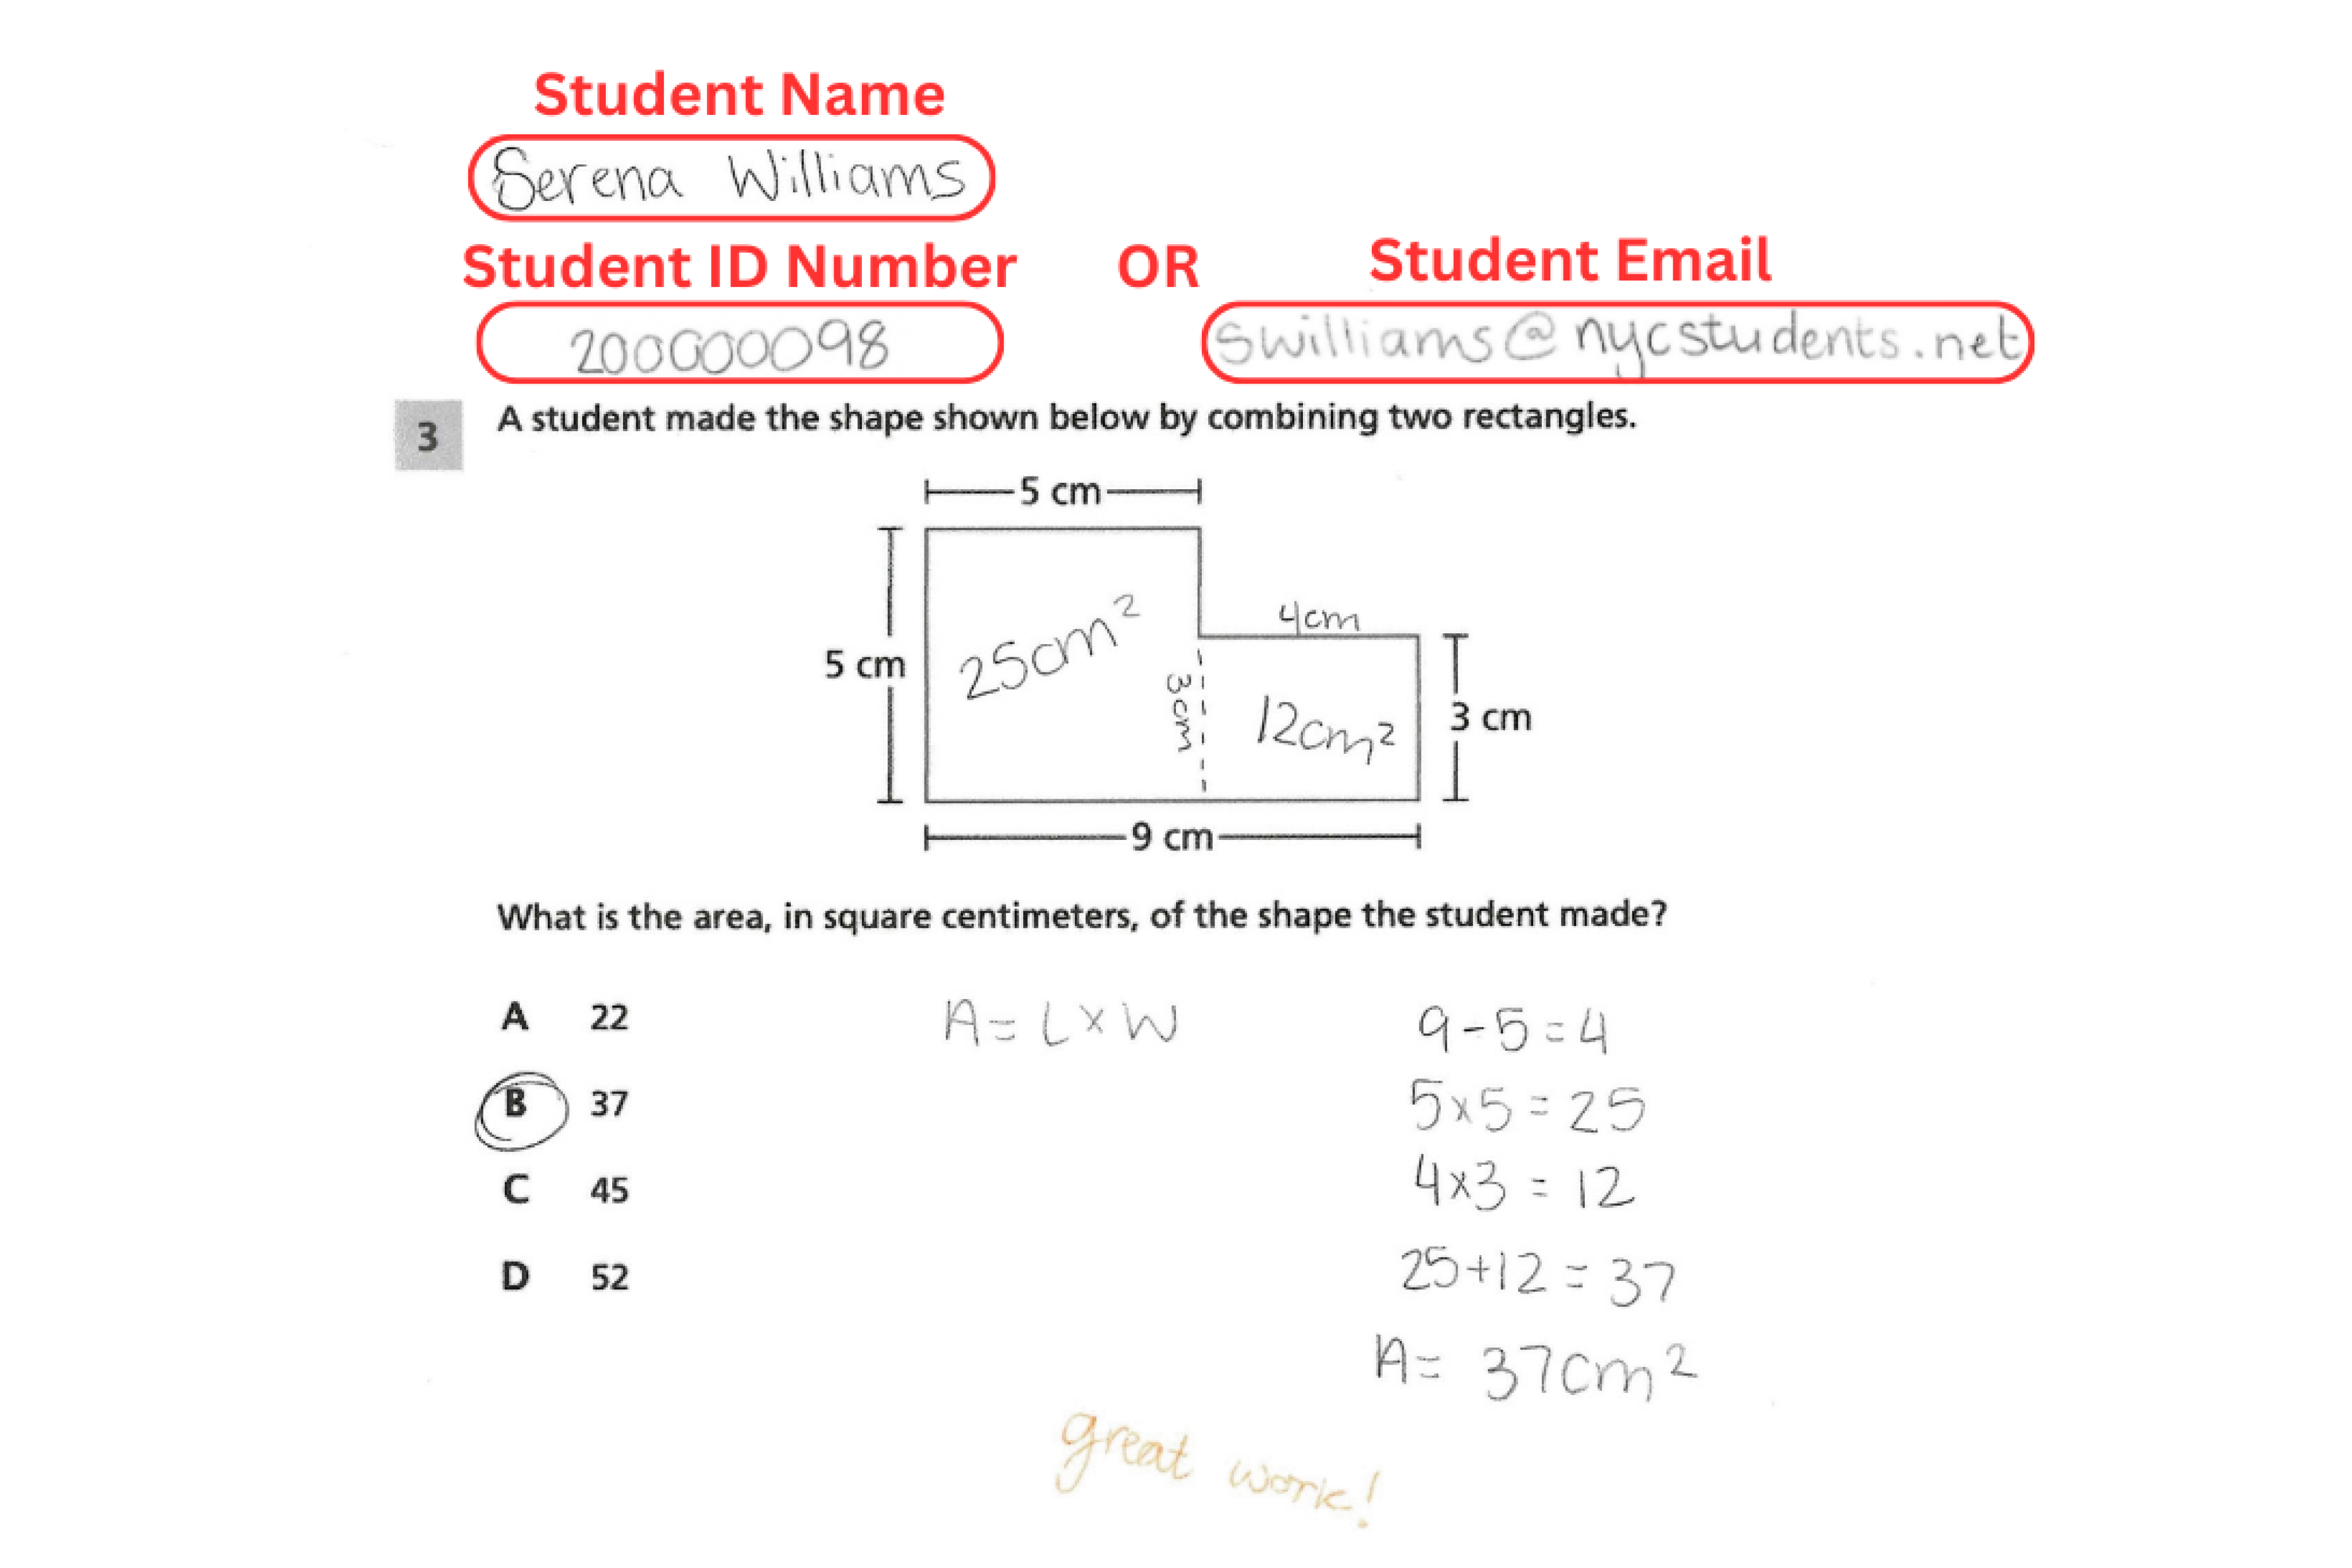 Student Name
Serena Williams
Student ID Number OR Student Email
200000098 swilliams@nycstudents.net
3 A student made the shape shown below by combining two rectangles.
5 cm
4cm
5 cm 25cm² 3cm 12cm² 3 cm
9 cm
What is the area, in square centimeters, of the shape the student made?
A 22 A = L x W 9 - 5 = 4
B 37 5x5 = 25
C 45 4x3 = 12
D 52 25+12 = 37
A = 37cm²
great work!